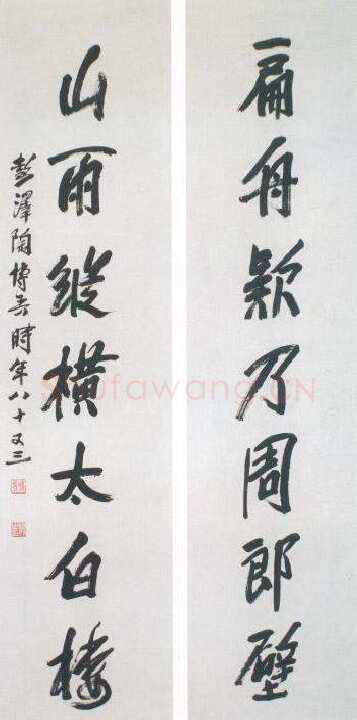 扁舟欸乃周郎壁
山雨縱橫太白樓
彭澤陶博吾時年八十又三
Shufawang.CN